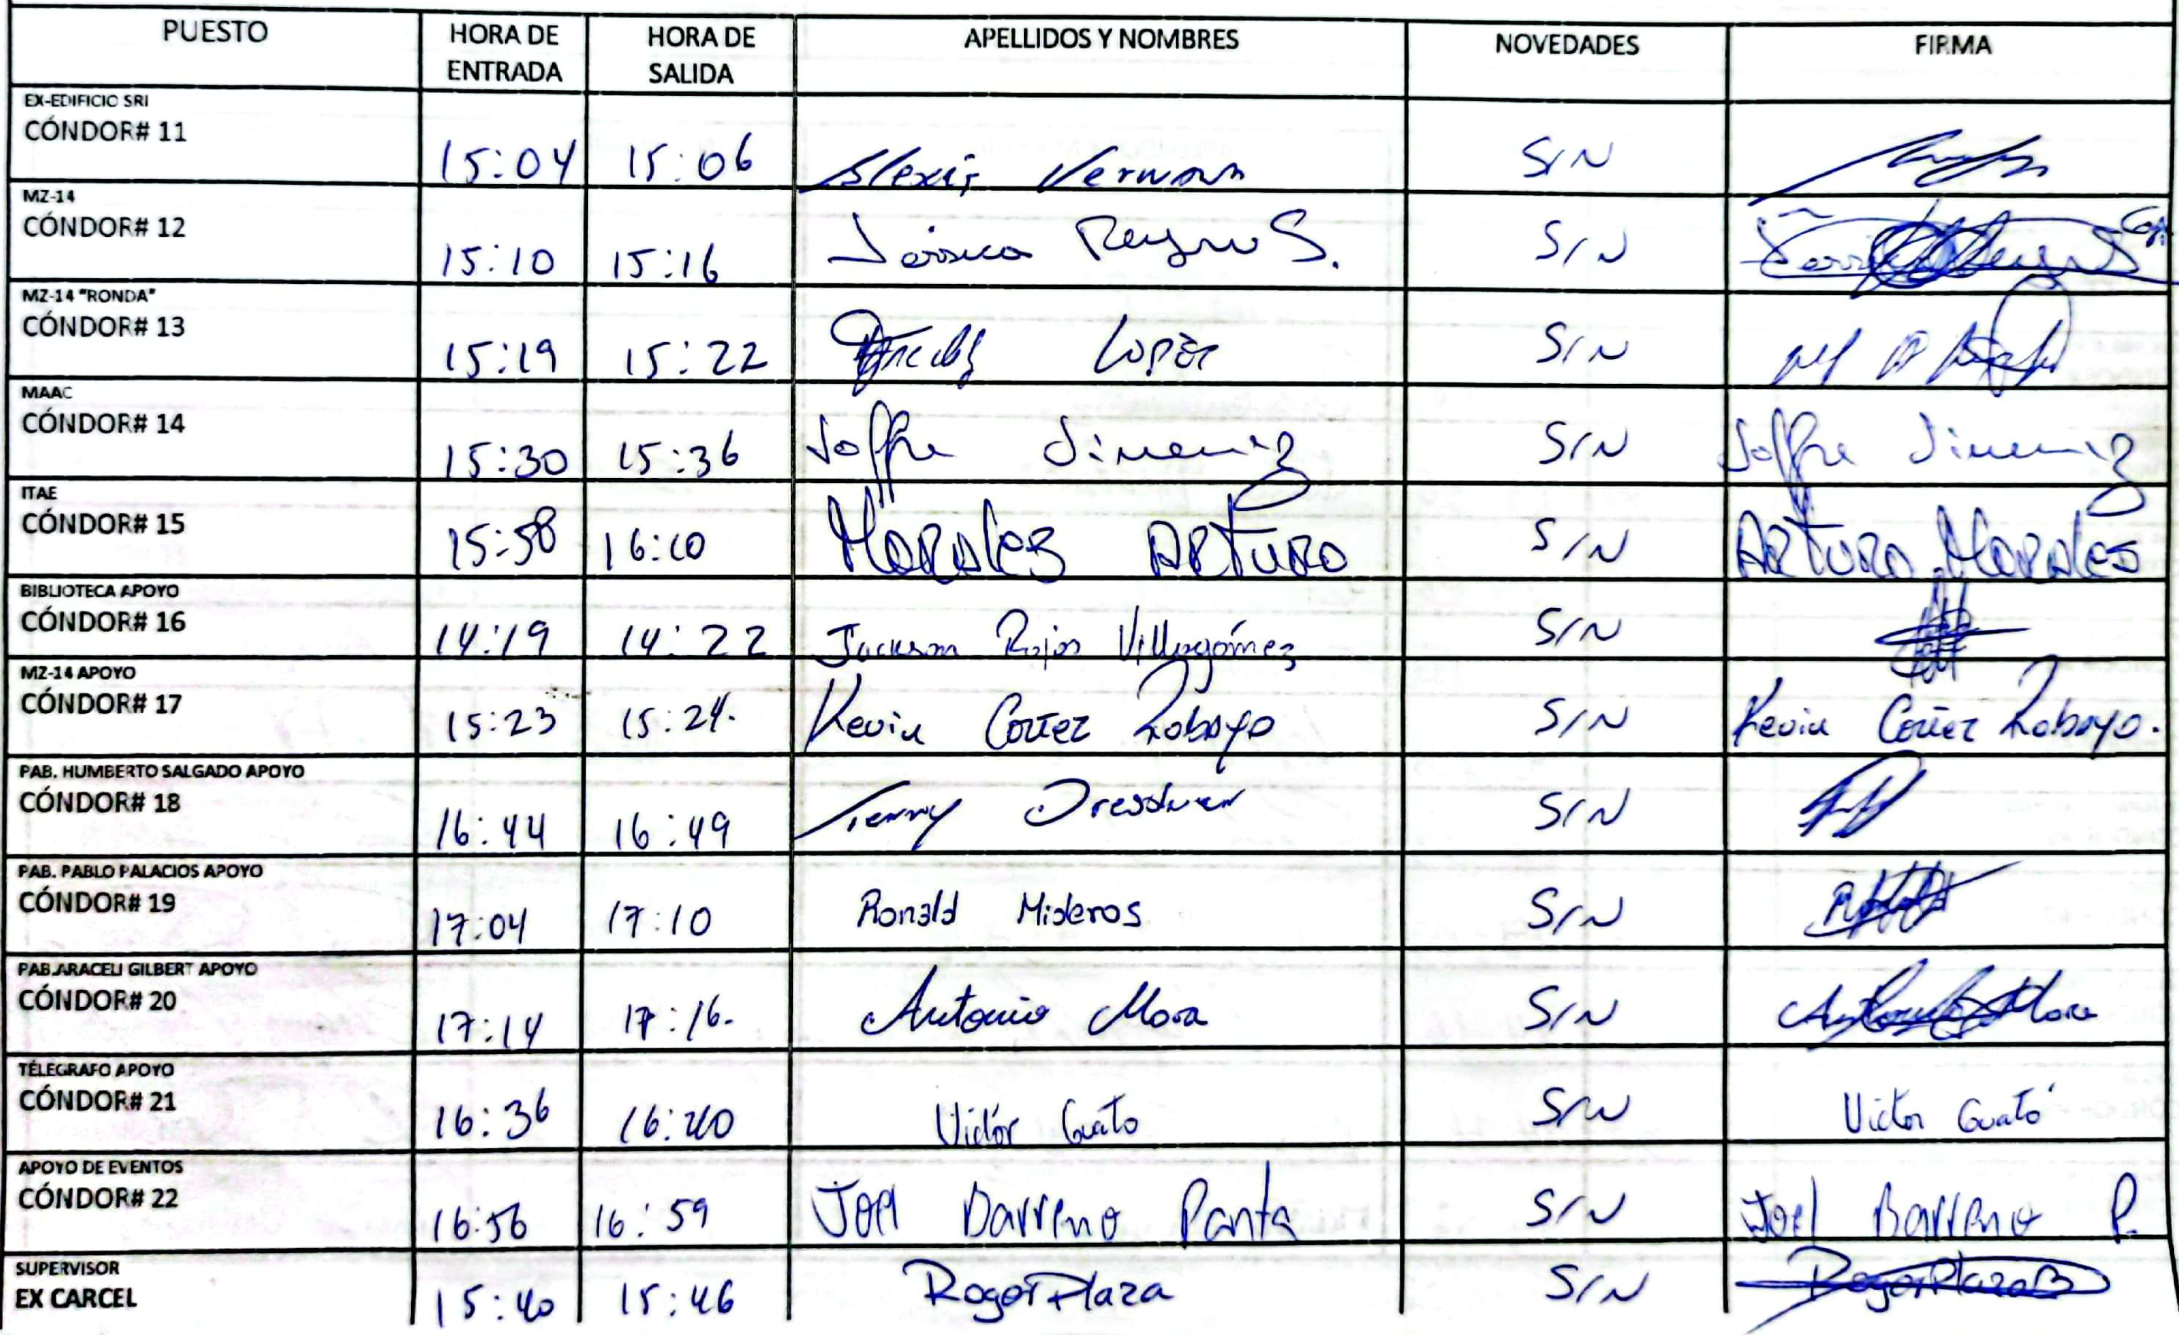 PUESTO HORA DE ENTRADA HORA DE SALIDA APELLIDOS Y NOMBRES NOVEDADES FIRMA
EX-EDIFICIO SRI
CÓNDOR# 11 15:04 15:06 Alexis S/N
MZ-14
CÓNDOR# 12 15:10 15:16 Jéssica Reyna S. S/N
MZ-14 "RONDA"
CÓNDOR# 13 15:19 15:22 Lopez S/N
MAAC
CÓNDOR# 14 15:30 15:36 Joffre Jimenez S/N Joffre Jimenez
ITAE
CÓNDOR# 15 15:58 16:10 Morales Arturo S/N Arturo Morales
BIBLIOTECA APOYO
CÓNDOR# 16 14:19 14:22 Jackson Rojas Villagómez S/N
MZ-14 APOYO
CÓNDOR# 17 15:23 15:24. Kevin Cortez Lobayo S/N Kevin Cortez Lobayo.
PAB. HUMBERTO SALGADO APOYO
CÓNDOR# 18 16:44 16:49 S/N
PAB. PABLO PALACIOS APOYO
CÓNDOR# 19 17:04 17:10 Ronald Mideros S/N
PAB.ARACELI GILBERT APOYO
CÓNDOR# 20 17:14 17:16. Antonio Mora S/N Mora
TÉLEGRAFO APOYO
CÓNDOR# 21 16:36 16:40 Victor Guato S/N Victor Guato
APOYO DE EVENTOS
CÓNDOR# 22 16:56 16:59 Joel Barreno Panta S/N Joel Barreno P.
SUPERVISOR
EX CARCEL 15:40 15:46 Roger Plaza S/N Roger Plaza B